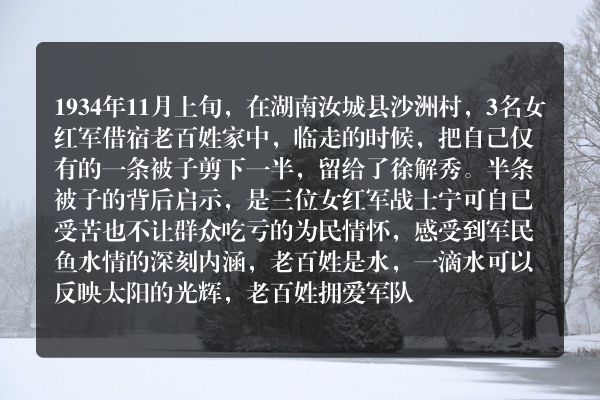 1934年11月上旬，在湖南汝城县沙洲村，3名女
红军借宿老百姓家中，临走的时候，把自己仅
有的一条被子剪下一半，留给了徐解秀。半条
被子的背后启示，是三位女红军战士宁可自己
受苦也不让群众吃亏的为民情怀，感受到军民
鱼水情的深刻内涵，老百姓是水，一滴水可以
反映太阳的光辉，老百姓拥爱军队